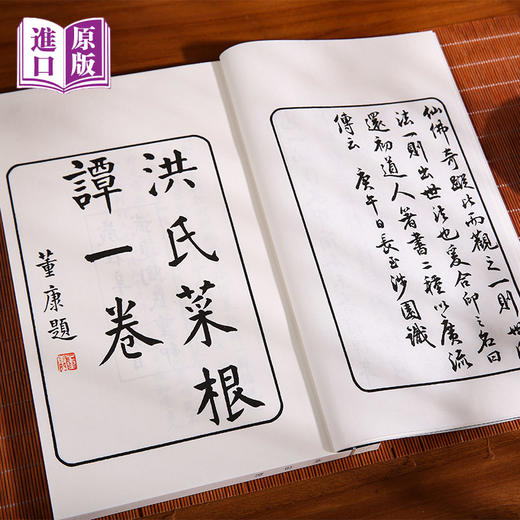 原版
進口
仙佛奇蹤比而觀之一則
法一則出世法也爰合印之名曰
還初道人著書二種以廣流
傳云 庚午日長至涉園識
洪氏菜根
譚一卷
董康題